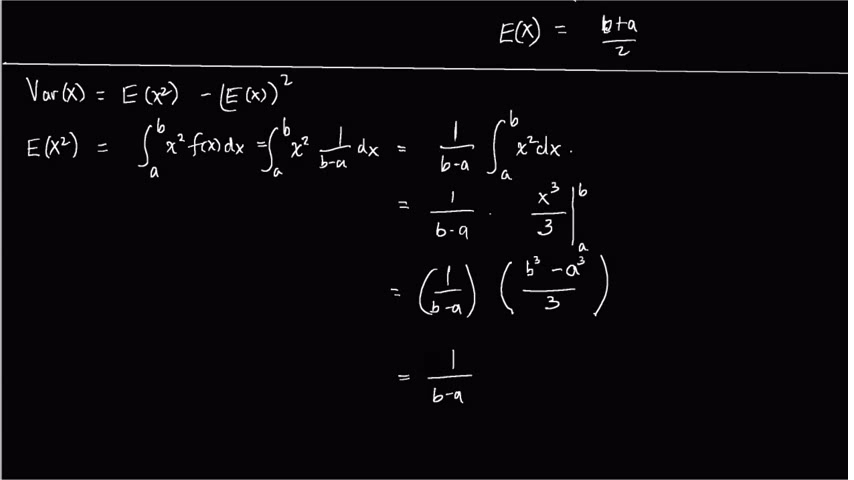 E(X) = b+a/2
Var(X) = E(X²) - (E(X))²
E(X²) = ∫_a^b x² f(x) dx = ∫_a^b x² 1/(b-a) dx = 1/(b-a) ∫_a^b x² dx.
= 1/(b-a) · x³/3 |_a^b
= (1/(b-a)) ((b³ - a³)/3)
= 1/(b-a)